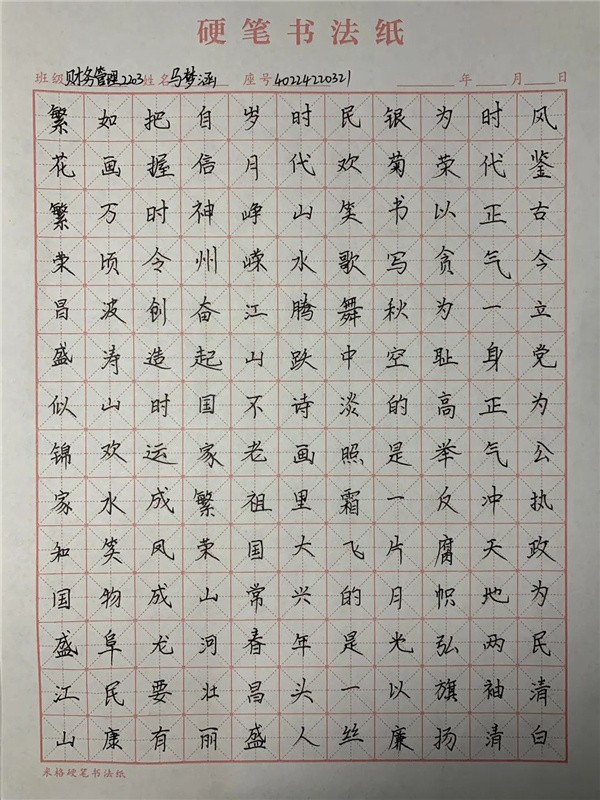 硬笔书法纸
班级 财务管理2203 姓名 马梦涵 座号 40224220321 年 月 日
繁花繁荣昌盛似锦家和国盛江山
如画万顷波涛山欢水笑物阜民康
把握时令创造时运成风成龙要有
自信神州奋起国家繁荣山河壮丽
岁月峥嵘江山不老祖国常春昌盛
时代山水腾跃诗画里大兴年头人
民欢笑歌舞中淡照霜飞的是一丝
银菊书写秋空的是一片月光以廉
为荣以贪为耻高举反腐帜弘旗扬
时代正气一身正气冲天地两袖清
风鉴古今立党为公执政为民清白
米格硬笔书法纸